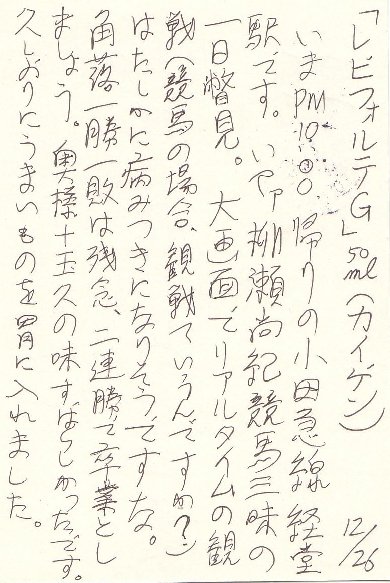 「レビフォルテG」50ml(カイゲン)
12/26
いまPM10:00 帰りの小田急線経堂
駅です。いやァ柳瀬尚紀競馬三昧の
一日瞥見。大画面でリアルタイムの観
戦(競馬の場合、観戦ていうんですか?)
はたしかに病みつきになりそうですな。
角落一勝一敗は残念、二連勝で卒業とし
ましょう。奥様十玉久の味すばらしかったです。
久しぶりにうまいものを胃に入れました。